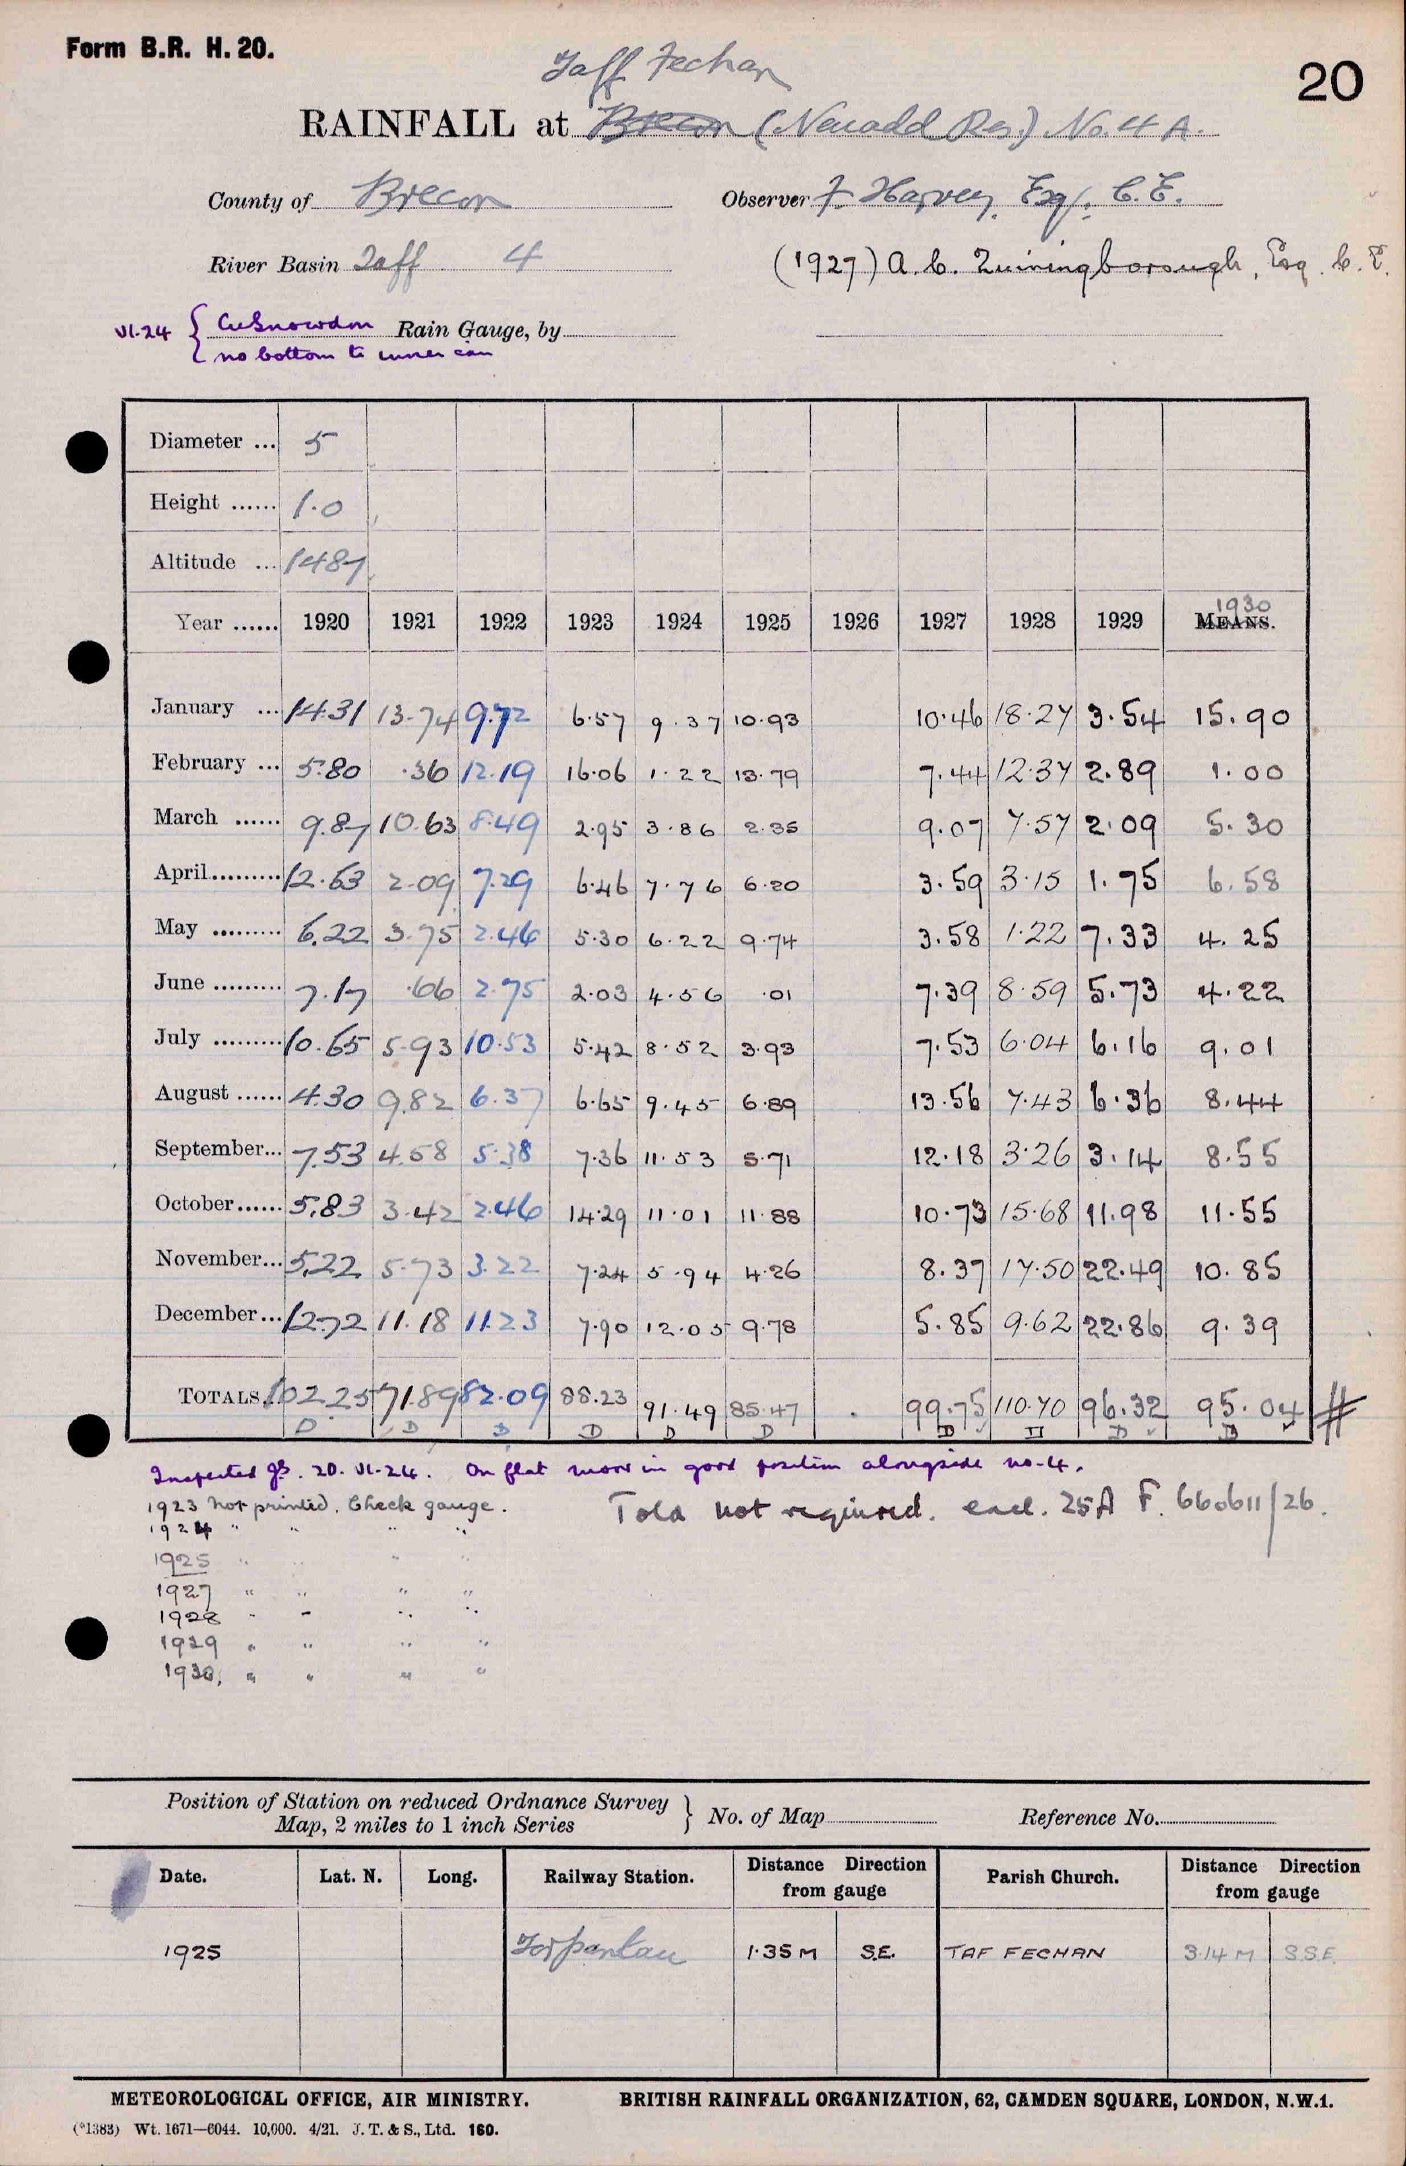 Form B.R. H. 20.
20
Taff Fechan
RAINFALL at Brecon (Neuadd Res.) No. 4 A.
County of Brecon Observer F. Harvey, Esq. C.E.
River Basin Taff 4 (1927) A. C. Twiningborough, Esq. C.E.
VI.24 { Cu Snowdon Rain Gauge, by
{ no bottom to inner can
Diameter ... 5
Height ...... 1.0
Altitude ... 1487
Year ...... 1920 1921 1922 1923 1924 1925 1926 1927 1928 1929 MEANS. 1930
January ... 14.31 13.74 9.72 6.57 9.37 10.93 10.46 18.27 3.54 15.90
February ... 5.80 .36 12.19 16.06 1.22 13.79 7.44 12.37 2.89 1.00
March ...... 9.87 10.63 8.49 2.95 3.86 2.35 9.07 7.57 2.09 5.30
April......... 12.63 2.09 7.29 6.46 7.76 6.20 3.59 3.15 1.75 6.58
May ......... 6.22 3.75 2.46 5.30 6.22 9.74 3.58 1.22 7.33 4.25
June ......... 7.17 .66 2.75 2.03 4.56 .01 7.39 8.59 5.73 4.22
July ......... 10.65 5.93 10.53 5.42 8.52 3.93 7.53 6.04 6.16 9.01
August ...... 4.30 9.82 6.37 6.65 9.45 6.89 13.56 7.43 6.36 8.44
September... 7.53 4.58 5.38 7.36 11.53 5.71 12.18 3.26 3.14 8.55
October...... 5.83 3.42 2.46 14.29 11.01 11.88 10.73 15.68 11.98 11.55
November... 5.22 5.73 3.22 7.24 5.94 4.26 8.37 17.50 22.49 10.85
December... 12.72 11.18 11.23 7.90 12.05 9.78 5.85 9.62 22.86 9.39
TOTALS. 102.25 71.89 82.09 88.23 91.49 85.47 . 99.75 110.70 96.32 95.04 #
D D D D D D D D D D
Inspected 20.VI.24. On flat moor in good position alongside no. 4.
1923 Not printed. Check gauge.
Told not required. encl. 25A F. 660611/26.
1924 " " " "
1925 " " " "
1927 " " " "
1928 " " " "
1929 " " " "
1930, " " " "
Position of Station on reduced Ordnance Survey
Map, 2 miles to 1 inch Series } No. of Map Reference No.
Date. Lat. N. Long. Railway Station. Distance Direction from gauge Parish Church. Distance Direction from gauge
1925 Torpantau 1.35 M S.E. TAF FECHAN 3.14 M S.S.E.
METEOROLOGICAL OFFICE, AIR MINISTRY. BRITISH RAINFALL ORGANIZATION, 62, CAMDEN SQUARE, LONDON, N.W.1.
(*1383) Wt. 1671—6044. 10,000. 4/21. J. T. & S., Ltd. 160.